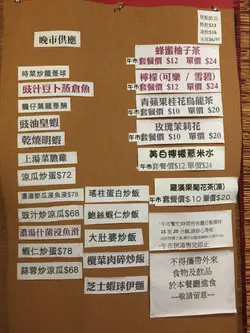 晚市供應
時菜炒龍躉球
豉汁豆卜蒸倉魚
龍仔蒸龍躉腩
豉油皇蝦
乾燒明蝦
上湯菜膽雞
涼瓜炒蛋$72
豉汁炒涼瓜$68
濃湯什菌浸魚滑
蝦仁炒蛋$78
蒜蓉炒涼瓜$68
瑤柱蛋白炒飯
鮑絲蝦仁炒飯
大肚婆炒飯
欖菜肉碎炒飯
芝士蝦球伊麵
蜂蜜柚子茶
午市套餐價 $12 單價 $24
檸檬(可樂 / 雪碧)
午市套餐價 $12 單價 $24
青蘋果桂花烏龍茶
套餐價 $10 單價 $20
玫瑰茉莉花
套餐價 $10 單價 $20
美白檸檬薏米水
午市套餐價 $12 單價 $24
羅漢果菊花茶(凍)
午市套餐價 $10 單價 $20
不得攜帶外來
食物及飲品
於本餐廳進食
─敬請留意─